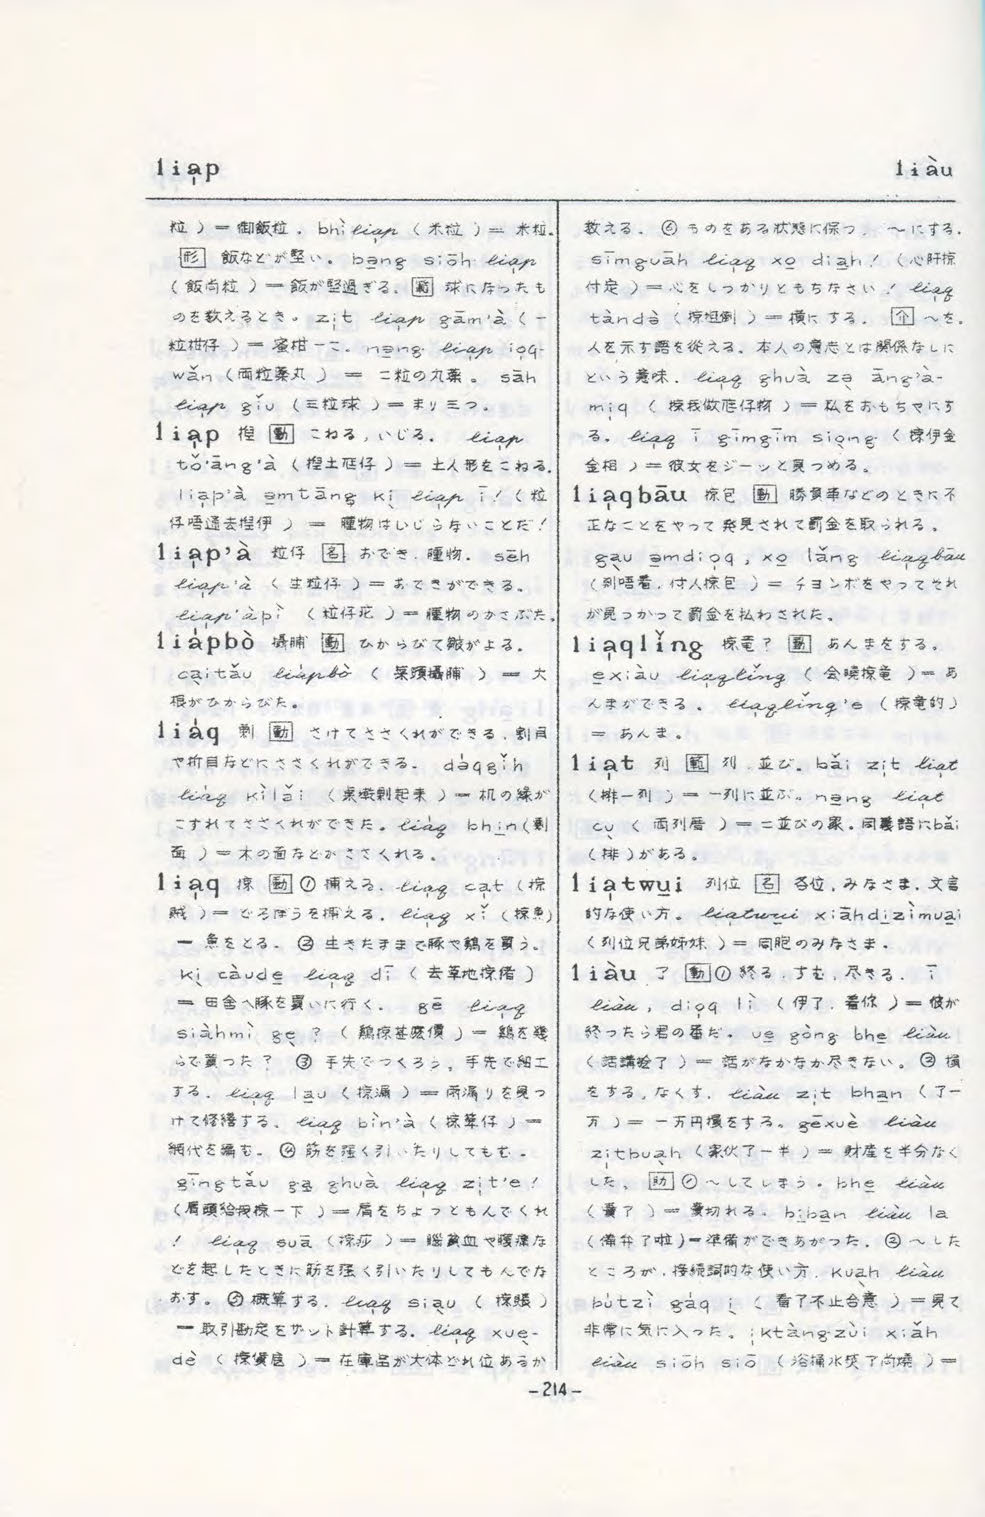 liạp
liàu
粒 ) ＝ 御飯粒 . bhì liạp ( 米粒 ) ＝ 米粒.
形 飯などが堅い。 bang siōh liạp
( 飯尚粒 ) ＝ 飯が堅過ぎる、 範 球になったも
のを数えるとき。 zịt liạp gām'à ( 一
粒柑仔 ) ＝ 蜜柑一こ. nạng liạp iọq-
wǎn ( 両粒薬丸 ) ＝ 二粒の丸薬 。 sāh
liạp giǔ ( 三粒球 ) ＝ まり三つ。
liạp 揑 動 こねる , いじる. liạp
tǒ'āng'à ( 揑土尫仔 ) ＝ 土人形をこねる.
liạp'à ạmtāng kị liạp ī ! ( 粒
仔唔通去揑伊 ) ＝ 腫物はいじらないことだ !
liạp'à 粒仔 名 おでき . 腫物. sēh
liạp'à ( 生粒仔 ) ＝ おできができる。
liạp'àpì ( 粒仔疕 ) ＝ 腫物のかさぶた.
liápbò 攝脯 動 ひからびて皺がよる.
cạitǎu liápbò ( 菜頭攝脯 ) ＝ 大
根がひからびた。
liáq 剺 動 さけてささくれができる . 割目
や折目などにささくれができる. dáqgǐh
liáq kìlǎi ( 桌墘剺起来 ) ＝ 机の縁が
こすれてささくれができた。 liáq bhịn ( 剺
面 ) ＝ 木の面などがささくれる.
liạq 掠 動 ① 捕える. liạq cạt ( 掠
賊 ) ＝ どろぼうを捕える. liạq xǐ ( 掠魚 )
＝ 魚をとる. ② 生きたままで豚や鶏を買う。
kị càude liạq dī ( 去草地掠猪 )
＝ 田舎へ豚を買いに行く. gē liạq
siàhmì gẹ ? ( 鶏掠甚麼價 ) ＝ 鶏を幾
らで買った ? ③ 手先でつくろう。手先で細工
する. liạq lạu ( 掠漏 ) ＝ 雨漏りを見つ
けて修繕する. liạq bìn'à ( 掠箅仔 ) ＝
網代を編む. ④ 筋を强く引いたりしてもむ.
gīngtǎu gạ ghuà liạq zịt'e !
( 肩頭給我掠一下 ) ＝ 肩をちょっともんでくれ
! liạq suā ( 掠痧 ) ＝ 脳貧血や腹痛な
どを起したときに筋を强く引いたりしてもんでな
おす。 ⑤ 概算する. liạq siạu ( 掠賬 )
＝ 取引勘定をザット計算する. liạq xuẹ-
dè ( 掠貨底 ) ＝ 在庫品が大体どれ位あるか
数える . ⑥ ものをある状態に保つ . ～にする.
sīmguāh liạq xọ diạh ! ( 心肝掠
付定 ) ＝ 心をしっかりともちなさい ! liạq
tàndà ( 掠坦倒 ) ＝ 横にする. 介 ～を.
人を示す語を従える. 本人の意志とは関係なしに
という意味 . liạq ghuà zẹ āng'à-
mịq ( 掠我做尫仔物 ) ＝ 私をおもちゃにす
る. liạq ī gīmgīm siọng ( 掠伊金
金相 ) ＝ 彼女をジーッと見つめる。
liạqbāu 掠包 動 勝負事などのときに不
正なことをやって発見されて罰金を取られる 。
gạu ạmdiọq , xọ lǎng liạqbāu
( 到唔着 . 付人掠包 ) ＝ チョンボをやってそれ
が見つかって罰金を払わされた.
liạqlǐng 掠竜 ? 動 あんまをする。
exiàu liạqlǐng ( 会曉掠竜 ) ＝ あ
んまができる . liạqlǐng'e ( 掠竜的 )
＝ あんま。
liạt 列 範 列 . 並び. bǎi zịt liạt
( 排一列 ) ＝ 一列に並ぶ. nạng liạt
cụ ( 両列厝 ) ＝ 二並びの家. 同義語にbǎi
( 排 )がある.
liạtwụi 列位 名 各位 . みなさま. 文言
的な使い方. liạtwụi xiāhdịzìmuại
( 列位兄弟姉妹 ) ＝ 同胞のみなさま.
liàu 了 動 ① 終る . すむ . 尽きる. ī
liàu , diọq lì ( 伊了 . 着你 ) ＝ 彼が
終ったら君の番だ. ue gòng bhe liàu
( 話講𣍐了 ) ＝ 話がなかなか尽きない。 ② 損
をする . なくす. liàu zịt bhan ( 了一
万 ) ＝ 一万円損をする。 gēxuè liàu
zịtbuạh ( 家伙了一半 ) ＝ 財産を半分なく
した. 助 ① ～してしまう. bhe liàu
( 賣了 ) ＝ 賣切れる. bịban liàu la
( 備弁了啦 ) ＝ 準備ができあがった. ② ～した
ところが . 接続詞的な使い方. kuạh liàu
bútzì gáq ị ( 看了不止合意 ) ＝ 見て
非常に気に入った. ịktàngzùi xiǎh
liàu siōh siō ( 浴桶水焚了尚燒 ) ＝
-214-